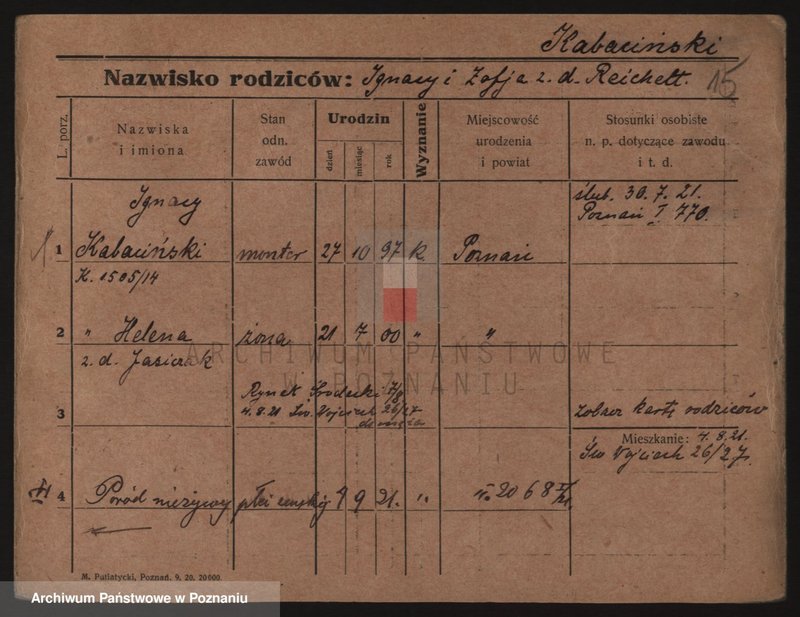 Kabaciński
Nazwisko rodziców: Ignacy i Zofja z. d. Reichelt. 15
L. porz.
Nazwiska
i imiona
Stan
odn.
zawód
Urodzin
dzień
miesiąc
rok
Wyznanie
Miejscowość
urodzenia
i powiat
Stosunki osobiste
n. p. dotyczące zawodu
i t. d.
Ignacy
ślub. 30. 7. 21.
Poznań I 770.
1 Kabaciński monter 27 10 97 k. Poznań
K. 1505/14
2 " Helena żona 21 7 00 " "
z. d. Jasiczak
Rynek Śródecki 7/8
4.8.21 Św. Wojciech 26/27
3 zobacz kartę rodziców
Mieszkanie: 4. 8. 21.
Św Wojciech 26/27.
4 Poród nieżywy płci męskiej 9 9 21. " № 2068
M. Putiatycki, Poznań. 9. 20. 20000.
ARCHIWUM PAŃSTWOWE
W POZNANIU
Archiwum Państwowe w Poznaniu